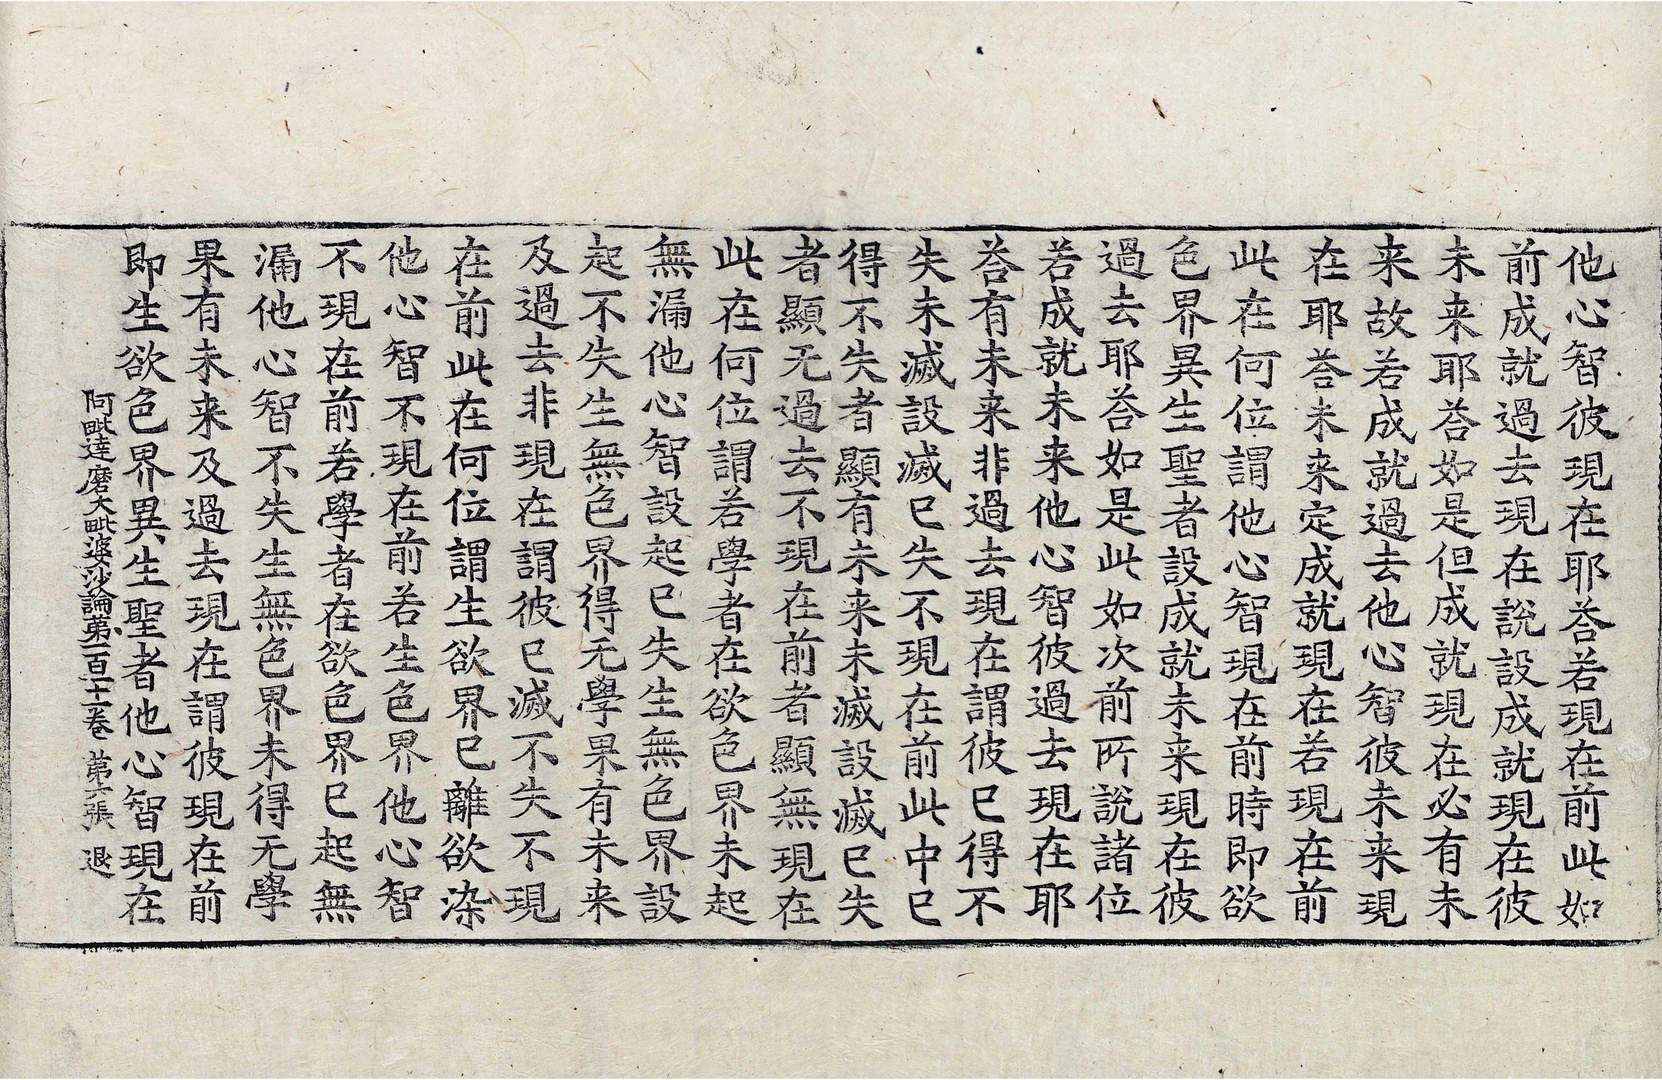 他心智彼現在耶荅若現在前此如
前成就過去現在說設成就現在彼
未来耶荅如是但成就現在必有未
来故若成就過去他心智彼未来現
在耶荅未来定成就現在若現在前
此在何位謂他心智現在前時即欲
色界異生聖者設成就未来現在彼
過去耶荅如是此如次前所說諸位
若成就未来他心智彼過去現在耶
荅有未来非過去現在謂彼已得不
失未滅設滅已失不現在前此中已
得不失者顯有未来未滅設滅已失
者顯无過去不現在前者顯無現在
此在何位謂若學者在欲色界未起
無漏他心智設起已失生無色界設
起不失生無色界得无學果有未来
及過去非現在謂彼已滅不失不現
在前此在何位謂生欲界已離欲染
他心智不現在前若生色界他心智
不現在前若學者在欲色界已起無
漏他心智不失生無色界未得无學
果有未来及過去現在謂彼現在前
即生欲色界異生聖者他心智現在
阿毗達磨大毗婆沙論第一百十一卷 第六張 退